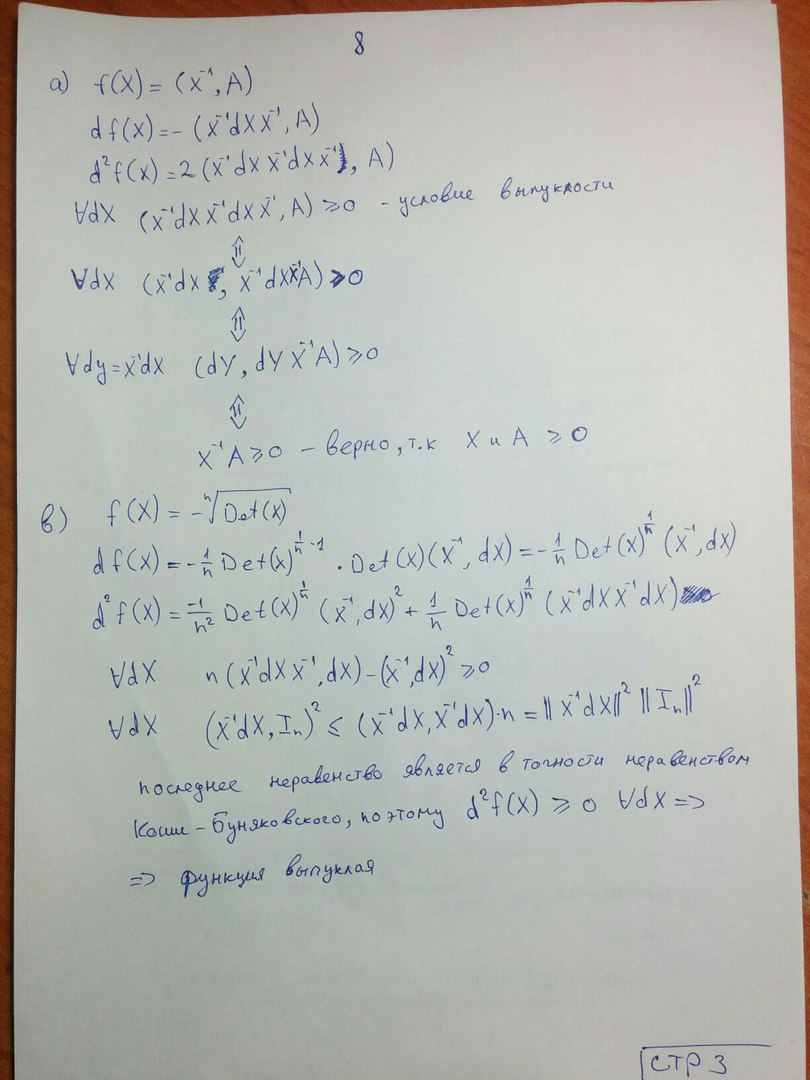 8
а) f(X) = (X⁻¹, A)
df(X) = - (X⁻¹dX X⁻¹, A)
d²f(X) = 2 (X⁻¹dX X⁻¹dX X⁻¹, A)
∀dX (X⁻¹dX X⁻¹dX X⁻¹, A) ≥ 0 - условие выпуклости
⇕
∀dX (X⁻¹dX, X⁻¹dX X⁻¹A) ≥ 0
⇕
∀dy = X⁻¹dX (dY, dY X⁻¹A) ≥ 0
⇕
X⁻¹A ≥ 0 – верно, т.к X и A ≥ 0
в) f(X) = -ⁿ√Det(X)
df(X) = -1/n Det(X)^(1/n - 1) · Det(X)(X⁻¹, dX) = -1/n Det(X)^(1/n) (X⁻¹, dX)
d²f(X) = -1/n² Det(X)^(1/n) (X⁻¹, dX)² + 1/n Det(X)^(1/n) (X⁻¹dX X⁻¹dX)
∀dX n(X⁻¹dX X⁻¹, dX) - (X⁻¹, dX)² ≥ 0
∀dX (X⁻¹dX, Iₙ)² ≤ (X⁻¹dX, X⁻¹dX)·n = ||X⁻¹dX||² ||Iₙ||²
последнее неравенство является в точности неравенством
Коши – Буняковского, поэтому d²f(X) ≥ 0 ∀dX =>
=> функция выпуклая
СТР 3